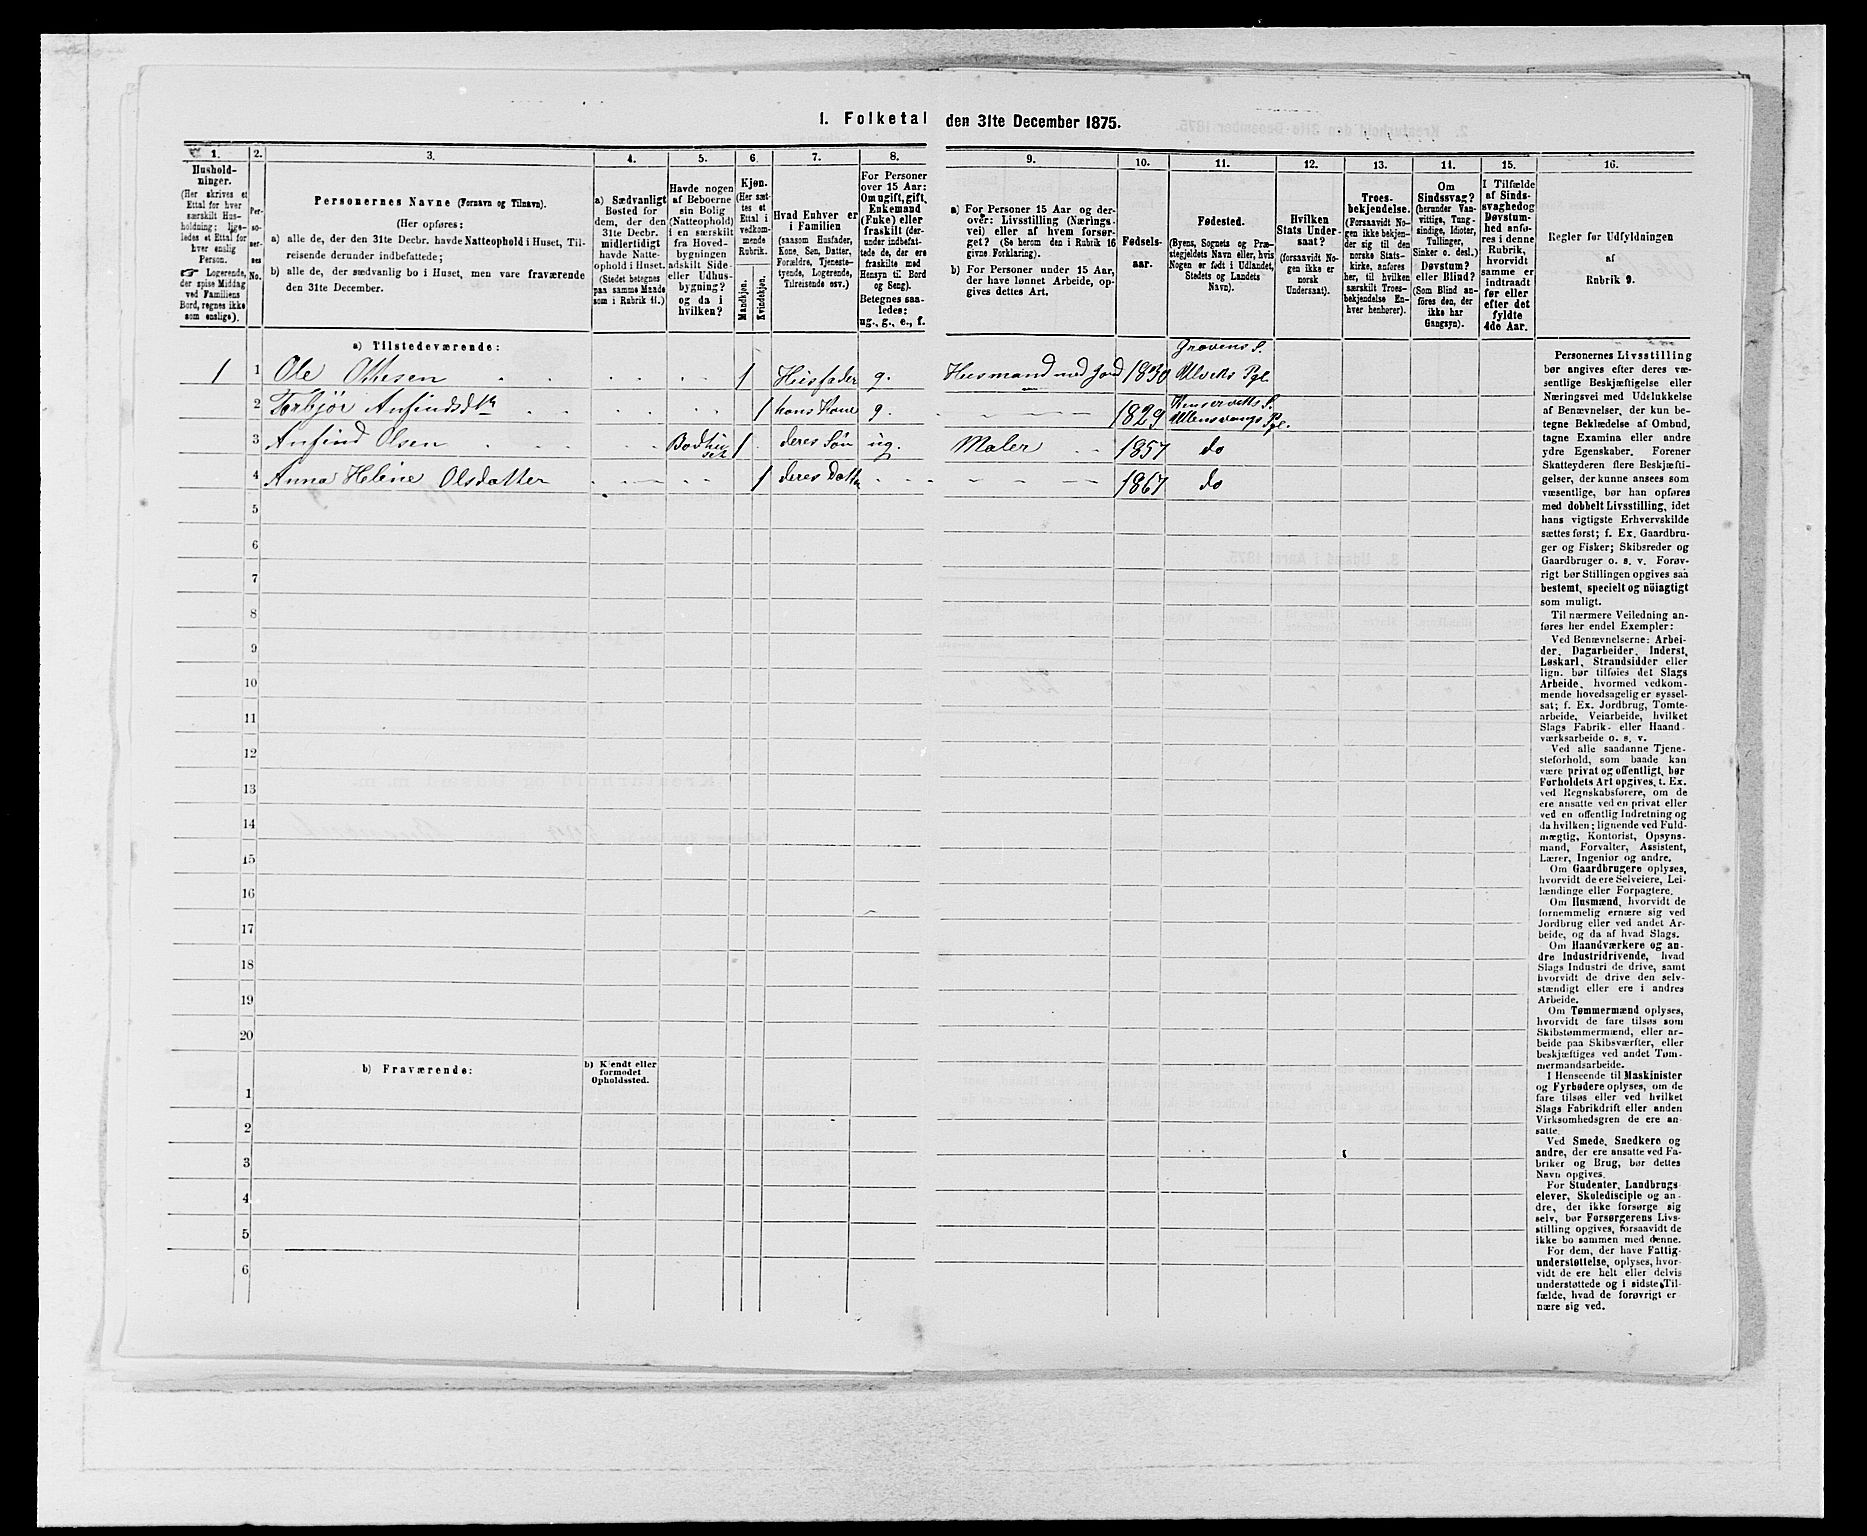 1. Folketal den 31te December 1875.
1.
Hushold-
ninger.
(Her skrives et
Ettal for hver
særskilt Hus-
holdning; lige-
ledes et Ettal for
hver enslig
Person.
☞ Logerende,
der spise Middag
ved Familiens
Bord, regnes ikke
som enslige).
2.
Per-
so-
ner-
nes
No.
3.
Personernes Navne (Fornavn og Tilnavn).
(Her opføres:
a) alle de, der den 31te Decbr. havde Natteophold i Huset, Til-
reisende derunder indbefattede;
b) alle de, der sædvanlig bo i Huset, men vare fraværende
den 31te December.
4.
a) Sædvanligt
Bosted for
dem, der den
31te Decbr.
midlertidigt
havde Natte-
ophold i Huset.
(Stedet betegnes
paa samme Maade
som i Rubrik 11.)
5.
Havde nogen
af Beboerne
sin Bolig
(Natteophold)
i en særskilt
fra Hoved-
bygningen
adskilt Side-
eller Udhus-
bygning?
og da i
hvilken?
6.
Kjøn.
(Her sæt-
tes et
Ettal i
vedkom-
mende
Rubrik.
Mandkjøn.
Kvindekjøn.
7.
Hvad Enhver er
i Familien
(saasom Husfader,
Kone, Søn, Datter,
Forældre, Tjeneste-
tyende, Logerende,
Tilreisende osv.)
8.
For Personer
over 15 Aar:
Om ugift, gift,
Enkemand
(Enke) eller
fraskilt (der-
under indbefat-
tede de, der ere
fraskilte med
Hensyn til Bord
og Seng).
Betegnes saa-
ledes:
ug., g., e., f.
9.
a) For Personer 15 Aar og der-
over: Livsstilling (Nærings-
vei) eller af hvem forsør-
get? (Se herom den i Rubrik 16
givne Forklaring).
b) For Personer under 15 Aar,
der have lønnet Arbeide, op-
gives dettes Art.
10.
Fødsels-
aar.
11.
Fødested.
(Byens, Sognets og Præ-
stegjeldets Navn eller, hvis
Nogen er født i Udlandet,
Stedets og Landets
Navn).
12.
Hvilken
Stats Under-
saat?
(forsaavidt No-
gen ikke er
norsk
Undersaat).
13.
Troes-
bekjendelse.
(Forsaavidt No-
gen ikke bekjen-
der sig til den
norske Stats-
kirke, anføres
her, til hvilken
særskilt Troes-
bekjendelse En-
hver henhører).
14.
Om
Sindssvag?
(herunder Van-
vittige, Tung-
sindige, Idioter,
Tullinger,
Sinker o. desl.)
Døvstum?
eller Blind?
(Som Blind an-
føres den, der
ikke har
Gangsyn).
15.
I Tilfælde
af Sinds-
svaghed og
Døvstum-
hed anfø-
res i denne
Rubrik,
hvorvidt
samme er
indtraadt
før eller
efter det
fyldte
4de Aar.
16.
Regler før Udfyldningen
af
Rubrik 9.
a) Tilstedeværende:
1 1 Ole Ottesen 1 Husfader g. Husmand med Jord 1830 Gravens S. Ulviks Pgl.
2 Torbjør Anfindsdtr 1 hans Kone g. 1829 Kinserviks S. Ullensvangs Pgl.
3 Anfind Olsen Bodhuset 1 deres Søn ug. Maler 1857 do
4 Anna Helene Olsdatter 1 deres Datter 1867 do
5
6
7
8
9
10
11
12
13
14
15
16
17
18
19
20
b) Fraværende:
b) Kjendt eller
formodet
Opholdssted.
1
2
3
4
5
6
Personernes Livsstilling
bør angives efter deres væ-
sentlige Beskjæftigelse eller
Næringsvei med Udelukkelse
af Benævnelser, der kun be-
tegne Beklædelse af Ombud,
tagne Examina eller andre
ydre Egenskaber. Forener
Skatteyderen flere Beskjæfti-
gelser, der kunne ansees som
væsentlige, bør han opføres
med dobbelt Livsstilling, idet
hans vigtigste Erhvervskilde
sættes først; f. Ex. Gaardbru-
ger og Fisker; Skibsreder og
Gaardbruger o. s. v. Forøv-
rigt bør Stillingen opgives saa
bestemt, specielt og nöiagtigt
som muligt.
Til nærmere Veiledning an-
føres her endel Exempler:
Ved Benævnelserne: Arbei-
der, Dagarbeider, Inderst,
Løskarl, Strandsidder eller
lign. bør tilføies det Slags
Arbeide, hvormed vedkom-
mende hovedsagelig er syssel-
sat; f. Ex. Jordbrug, Tomte-
arbeide, Veiarbeide, hvilket
Slags Fabrik- eller Haand-
værksarbeide o. s. v.
Ved alle saadanne Tjene-
steforhold, som baade kan
være privat og offentligt, bør
Forholdets Art opgives, t. Ex.
ved Regnskabsførere, om de
ere ansatte ved en privat eller
ved en offentlig Indretning og
da hvilken; lignende ved Fuld-
mægtig, Kontorist, Opsyns-
mand, Forvalter, Assistent,
Lærer, Ingeniør og andre.
Om Gaardbrugere oplyses,
hvorvidt de ere Selveiere, Lei-
lændinge eller Forpagtere.
Om Husmænd, hvorvidt de
fornemmelig ernære sig ved
Jordbrug eller ved andet Ar-
beide, og da af hvad Slags.
Om Haandværkere og an-
dre Industridrivende, hvad
Slags Industri de drive, samt
hvorvidt de drive den selv-
stændigt eller ere i andres
Arbeide.
Om Tømmermænd oplyses,
hvorvidt de fare tilsøs som
Skibstømmermænd, eller ar-
beide paa Skibsværfter, eller
beskjæftiges ved andet Tøm-
mermandsarbeide.
I Henseende til Maskinister
og Fyrbødere oplyses, om de
fare tilsøs eller ved hvilket
Slags Fabrikdrift eller anden
Virksomhedsgren de ere an-
satte.
Ved Smede, Snedkere og
andre, der ere ansatte ved Fa-
briker og Brug, bør dettes
Navn opgives.
For Studenter, Landbrugs-
elever, Skoledisciple og an-
dre, der ikke forsørge sig
selv, bør Forsørgerens Livs-
stilling opgives, forsaavidt de
ikke bo sammen med denne.
For dem, der have Fattig-
understøttelse, oplyses, hvor-
vidt de ere helt eller delvis
understøttede og i sidste Til-
fælde, hvad de forøvrigt er-
nære sig ved.